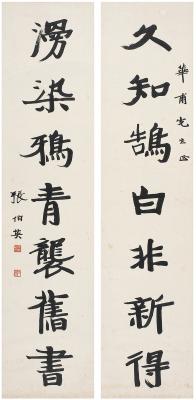 華甫先生正
久知鵠白非新得
漫染鴉青襲舊書
張伯英